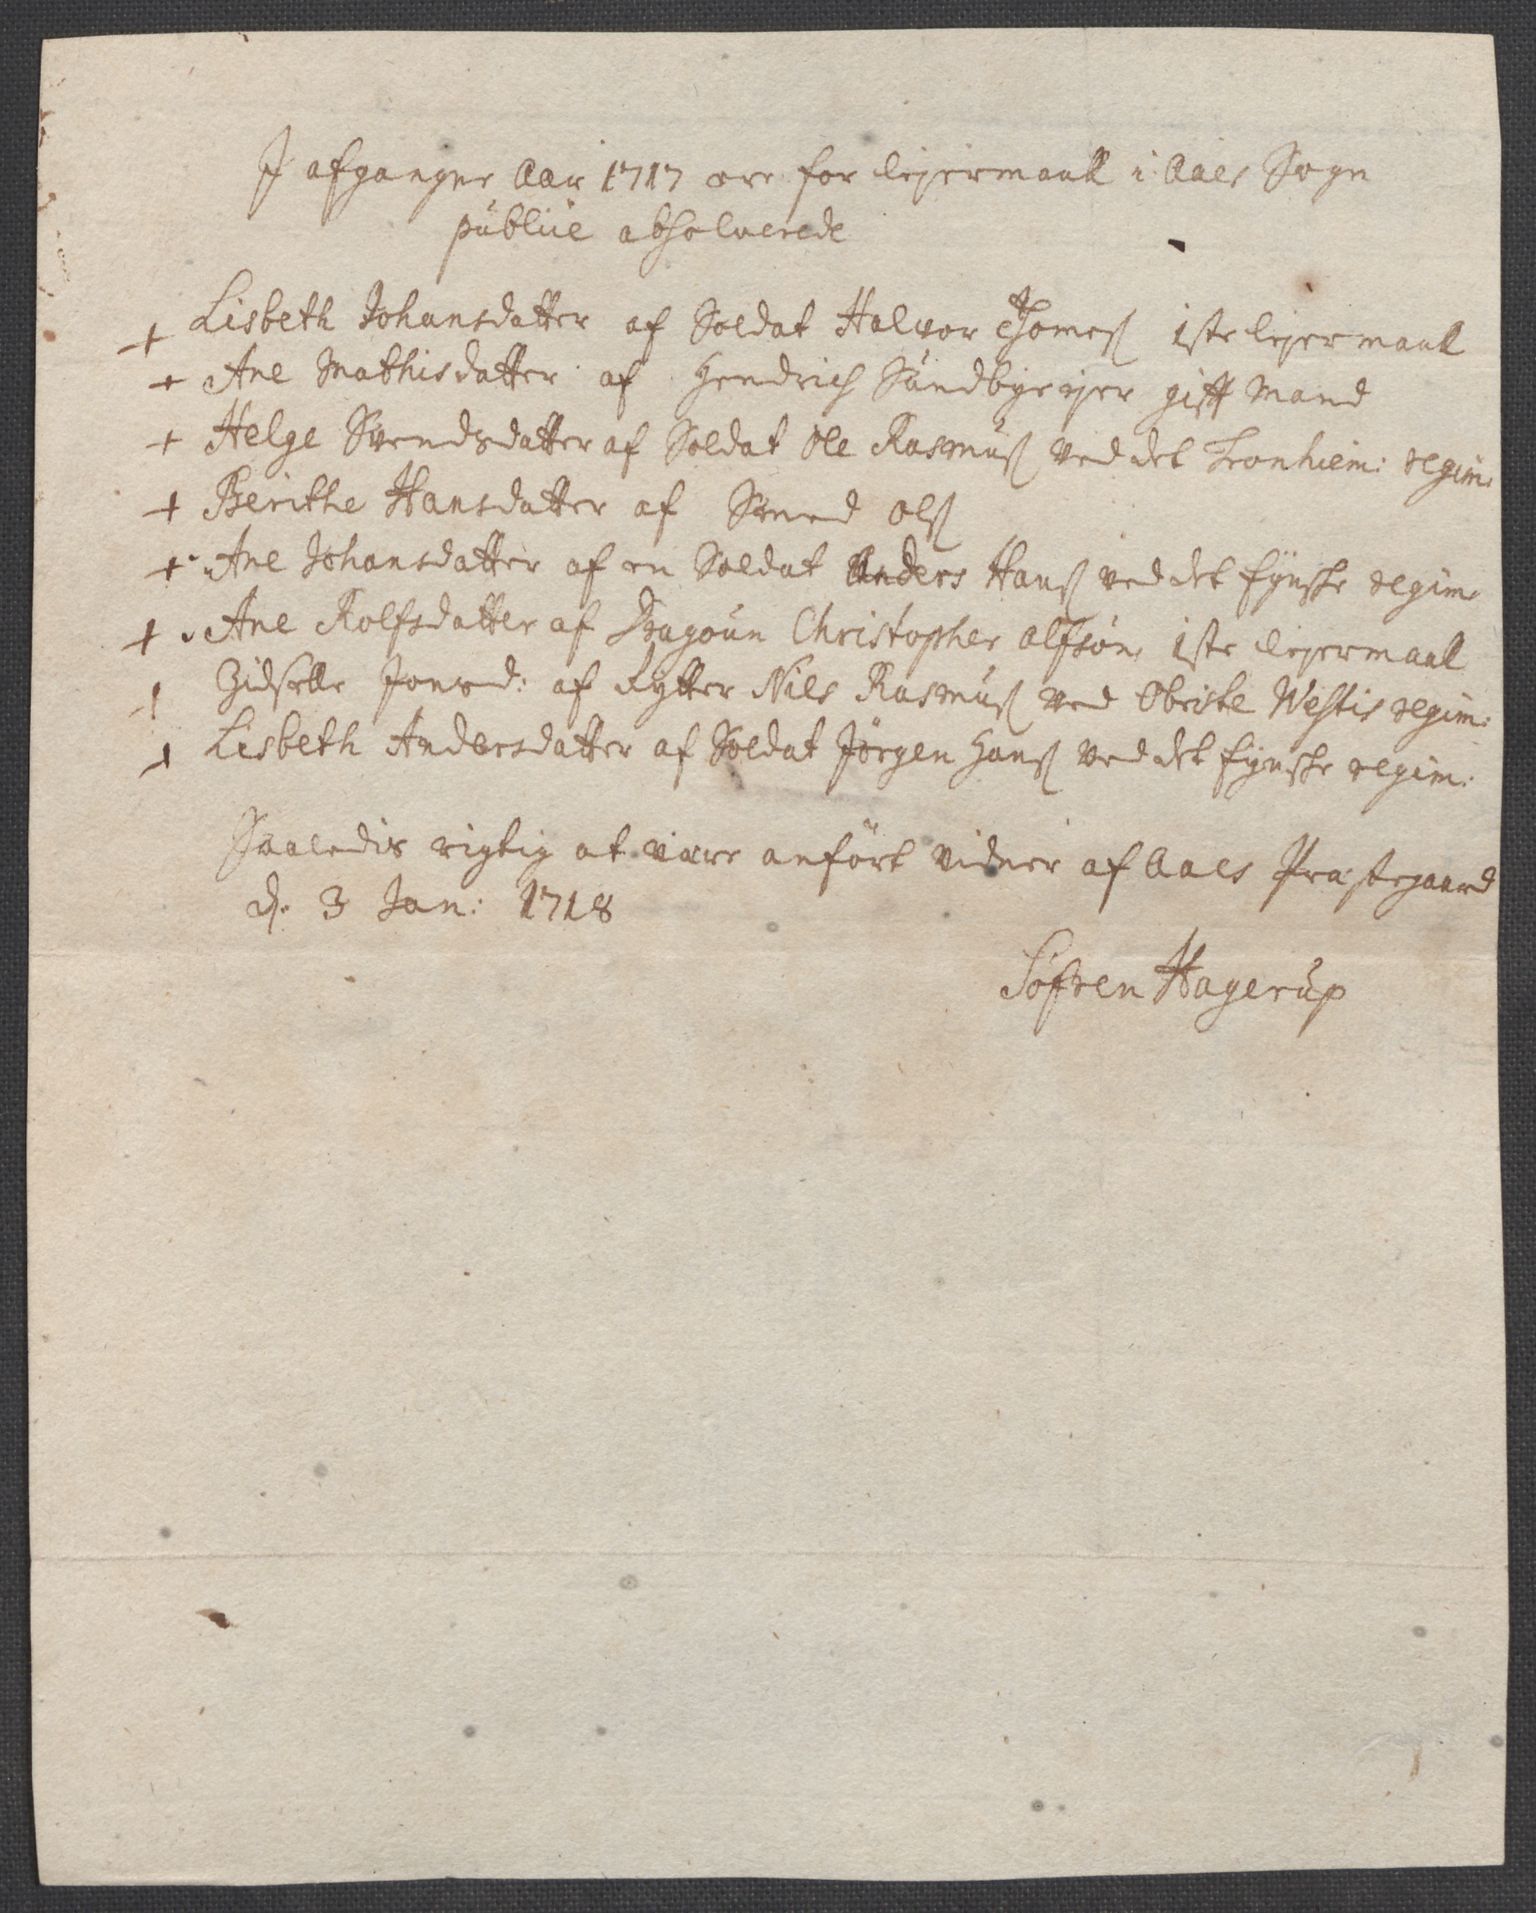 I afgangne Aar 1717 ere for lejermaall i Aaes Sogn
publice absolverede
+ Lisbeth Johansdatter af Soldat Halvor Thomesß 1ste lejermaall
+ Ane Mathisdatter af Hendrich Sundbye ejer gifft Mand
+ Helge Svendsdatter af Soldat Ole Rasmusß ved det Tronhiem: regim:
+ Berithe Hansdatter af Svend Olsß
+ Ane Johansdatter af en Soldat Anders Hansß ved det fynske regim:
+ Ane Rolfsdatter af Dragoun Christopher Olfsøn 1ste lejermaall
+ Zidselle Jonsd: af Rytter Niels Rasmusß ved Obriste Westis regim:
+ Lisbeth Andersdatter af Soldat Jørgen Hansß ved det fynske regim:
Saaledis rigtig at være anført vidner af Aaes Præstegaard
d. 3 Jan: 1718
Søfren Hagerup